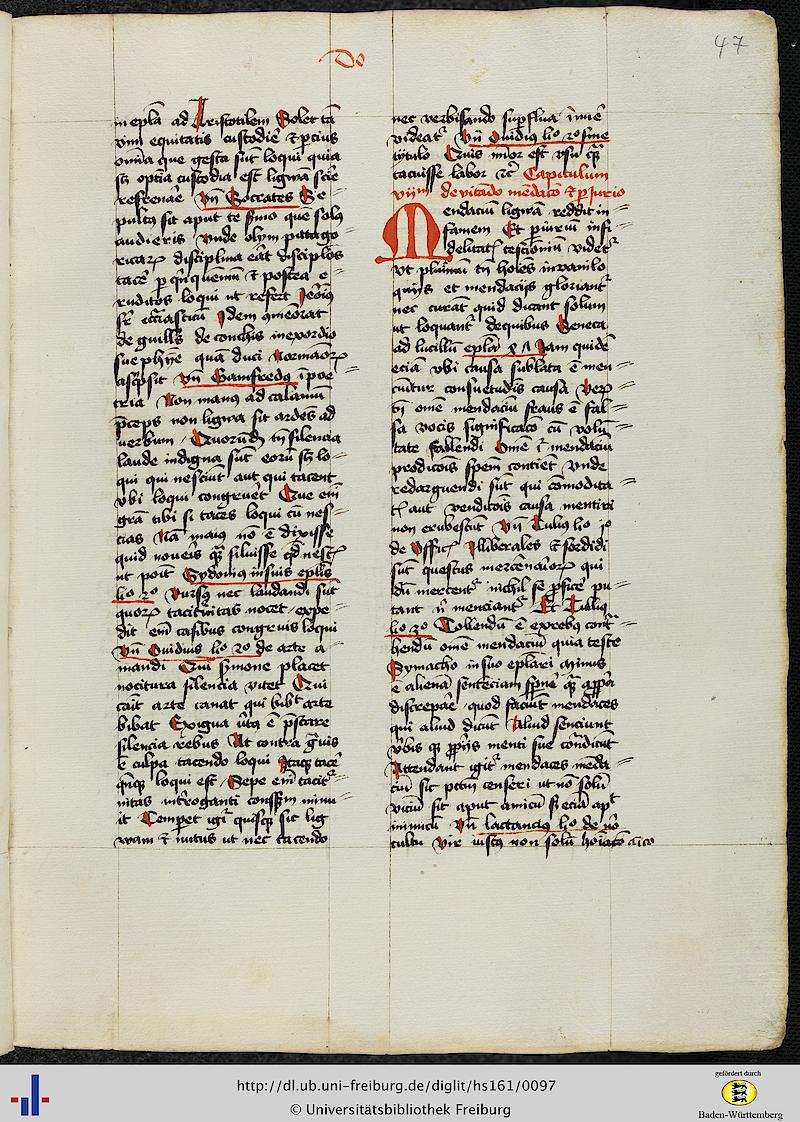 47
Do
in epla ad Aristotilem Solet ta
vim equitatis custodie et pcius
omnia que gesta sut loqui quia
optia custodia est ligwa scire
refrenare vn Socrates Se
pultus sit aput te smo que solus
audieris vnde olym pittago
ricarum disciplina erat discipulos
tace p quiquennium et postea e
ruditos loqui ut refert Jeronius
Idem comeorat
de conchis in exordio
sue phye
ascpsit vn Gamfredus i poe
tria Non manus ad calamum
pceps non ligwa sit ardes ad
verbum Quorund tn silencia
laude indigna sut eoru lo
qui qui nesciut aut qui tacent
vbi loqui congruet Que em
gra tibi si taces loqui cu nes
cias Na maius no e dixisse
quid noueris qua siluisse qd nesc
ut poit Sydonius in suis eplis
lio 2o Rursus nec laudandi sut
quorum taciturnitas nocet expe
dit em casibus congruis loqui
vn Ouidius lio 2o de arte a
mandi Cui symone placet
nocitura silencia vitet Qui
canit arte canat qui bibit arte
bibat Exigua e pstare
silencia rebus At contra gruis
e culpa tacendo loqui Itaque tace
loqui est Sepe em tacitr
nitas introganti minu
it Temperet igr quisque sit lig
wam et nutus ut nec tacendo
nec verbisando supflua
videatr vn Ouidius lio 2o sine
tytulo Quis minor est vsu qua
tacuisse labor etc Capitulum
viijm de vitando mendaco et piurio
Mendaciu ligwa reddit in
famem Et piuriu infi
delitatis testimoniu videtr
Vt plurimu tn hoies
et mendacijs gloriantr
nec curat quid dicant solum
ut loquantr de quibus Seneca
ad lucillu epla Nam quide
ecia vbi causa sublata e men
ciuntur consuetudis causa Vero
omne mendaciu fraus e fal
sa vocis significaco cu volu
tate fallendi Ome mendaciu
prodicois spem contiet vnde
redarguendi sut qui comodita
tis aut vendicois causa mentiri
non erubescut vn Tulius lio io
de Officiis Illiberales et sordidi
sut questus mercenariorum qui
du mercentr nichil se pfice pu
tant ni menciantr Et Tulius
lio 3o Tollendu e ex rebus cont
hendis ome mendaciu quia teste
Symacho in suo eplari minus
e aliena sentenciam spne qua appia
discrepare quod faciut mendaces
qui aliud dicut Aliud senciunt
vbis que ppriis menti sue condicut
Attendant igitr mendaces menda
ciu sit pctm censeri ut no solu
viciu sit aput amicu si ecia apt
inimicu vn lactancius lio de vo
cultu Vir iustus non solu
http://dl.ub.uni-freiburg.de/diglit/hs161/0097
© Universitätsbibliothek Freiburg
gefördert durch
Baden-Württemberg